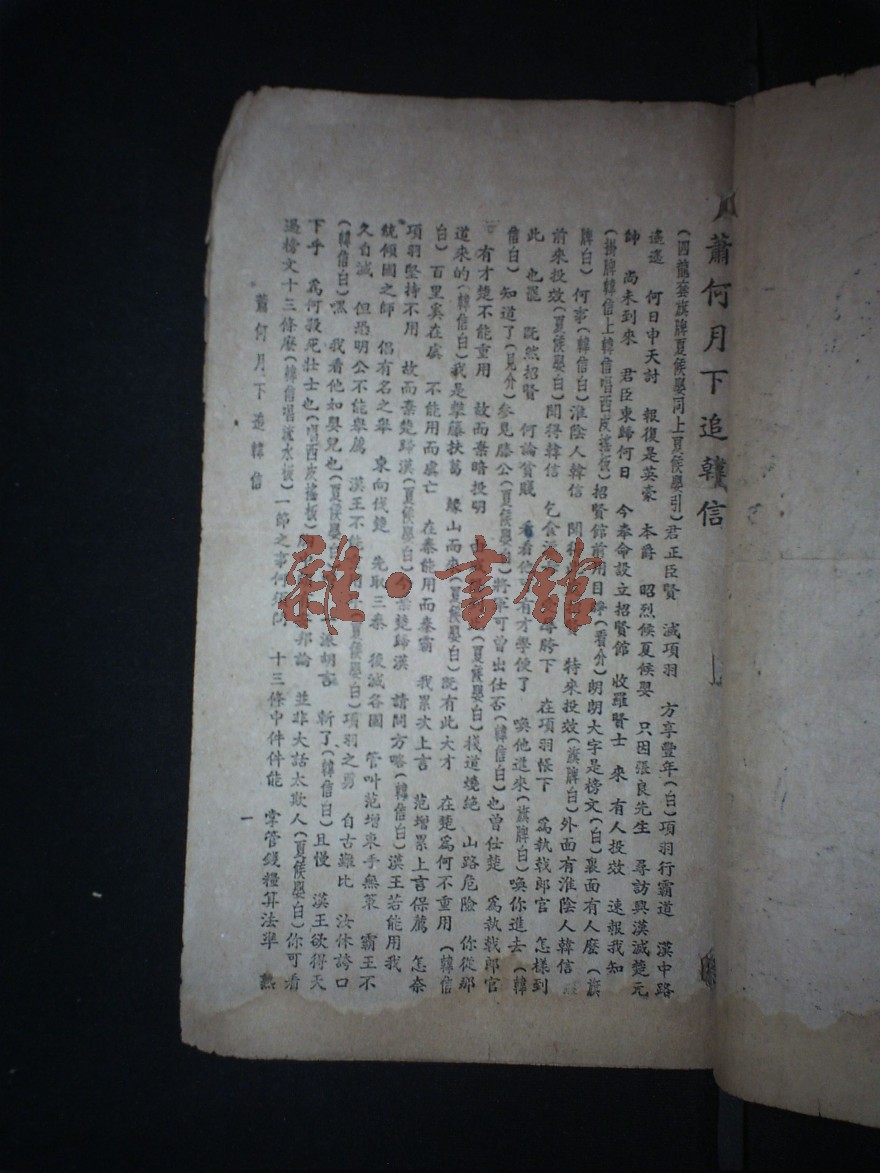 蕭何月下追韓信
（四龍套旗牌夏侯嬰同上夏侯嬰引）君正臣賢　滅項羽　方享豐年（白）項羽行霸道　漢中路
遙遙　何日申天討　報復是英豪　本爵　昭烈侯夏侯嬰　只因張良先生　尋訪興漢滅楚元
帥　尚未到來　君臣東歸何日　今奉命設立招賢館　收羅賢士　來　有人投效　速報我知
（掛牌韓信上韓信唱西皮搖板）招賢館前用目睁（看介）朗朗大字是榜文（白）裏面有人麽（旗
牌白）何事（韓信白）淮陰人韓信　聞得　特來投效（旗牌白）外面有淮陰人韓信
前來投效（夏侯嬰白）聞得韓信　乞食　胯下　在項羽帳下　爲執戟郎官　怎樣到
此　也罷　既然招賢　何論貧賤　看看他　有才學便了　喚他進來（旗牌白）喚你進去（韓
信白）知道了（見介）參見滕公（夏侯嬰白）將軍可曾出仕否（韓信白）也曾仕楚　爲執戟郎官
有才楚不能重用　故而棄暗投明（夏侯嬰白）棧道燒絕　山路危險　你從那
道來的（韓信白）我是攀藤扶葛　緣山而來（夏侯嬰白）既有此大才　在楚爲何不重用（韓信
白）百里奚在虞　不能用而虞亡　在秦能用而秦霸　我累次上言　范增累上言保薦　怎奈
項羽堅持不用　故而棄楚歸漢（夏侯嬰白）今棄楚歸漢　請問方略（韓信白）漢王若能用我
統傾國之師　倡有名之舉　東向伐楚　先取三秦　後滅各國　管叫范增束手無策　霸王不
久自滅　但恐明公不能舉薦　漢王不能用（夏侯嬰白）項羽之勇　自古難比　汝休誇口
（韓信白）嘿　我看他如嬰兒也（夏侯嬰白）胡言　斬了（韓信白）且慢　漢王欲得天
下乎　爲何殺死壯士也（唱西皮搖板）邦論　並非大話太欺人（夏侯嬰白）你可看
過榜文十三條麽（韓信唱流水板）一節之事何須　十三條中件件能　掌管錢糧算法準　熟
蕭何月下追韓信
一
雜·書館